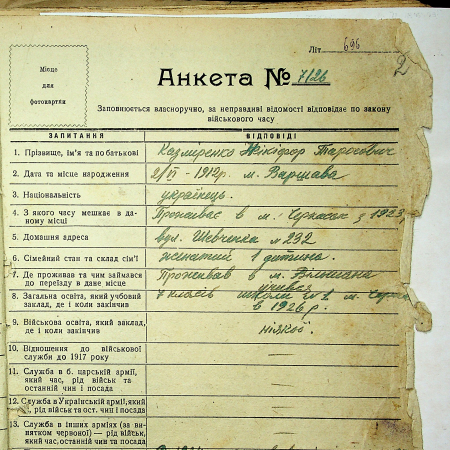 Літ. 696
2
Місце
для
фотокартки
Анкета № 7126
Заповнюється власноручно, за неправдиві відомості відповідає по закону
військового часу
ЗАПИТАННЯ ВІДПОВІДІ
1. Прізвище, ім'я та по батькові Казміренко Нікіфор Тарасович
2. Дата та місце народження 2/VI - 1912 р. м. Варшава
3. Національність українець.
4. З якого часу мешкає в да- Проживає в м. Черкасах з 1923 р.
ному місці
5. Домашня адреса вул. Шевченка № 232
6. Сімейний стан та склад сім'ї жонатий 1 дитина.
7. Де проживав та чим займався Проживав в м. Вільшана
до переїзду в дане місце учився
8. Загальна освіта, який учбовий 7 класів школи в м.
заклад, де і коли закінчив в 1926 р.
9. Військова освіта, який заклад,
де і коли закінчив ніякої.
10. Відношення до військової —
служби до 1917 року
11. Служба в б. царській армії, —
який час, рід військ та
останній чин і посада
12. Служба в Українській армії, який —
час, рід військ та ост. чин і посада
13. Служба в інших арміях (за ви- —
нятком червоної) — рід військ,
який час, останній чин та посада